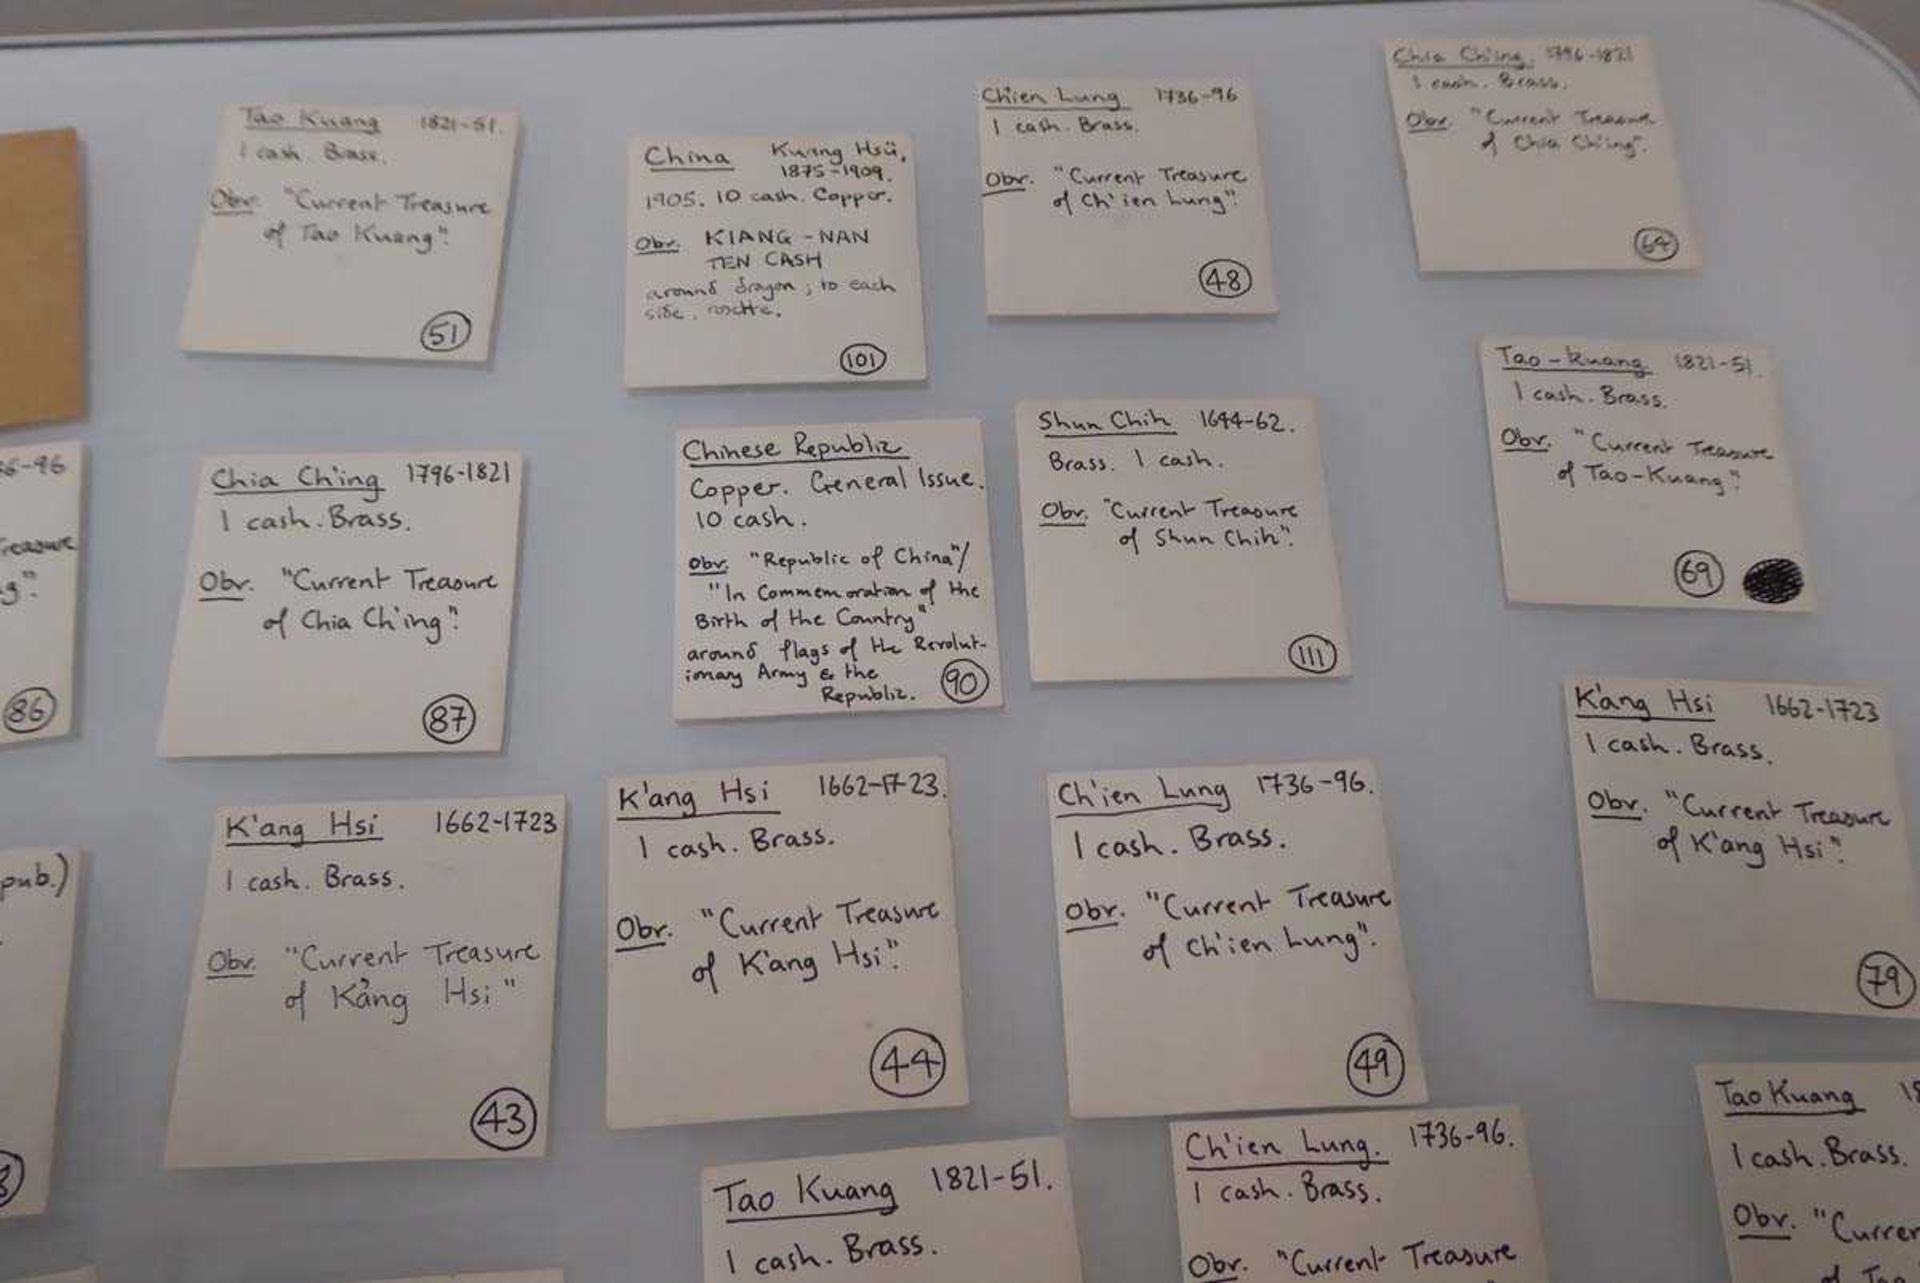 Tao Kuang 1821-51.
1 cash. Brass.
Obv. "Current Treasure
of Tao Kuang".
51
China Kuang Hsü,
1875-1909.
1905. 10 cash. Copper.
Obv. KIANG-NAN
TEN CASH
around dragon; to each
side, rosette.
101
Ch'ien Lung 1736-96
1 cash. Brass.
Obv. "Current Treasure
of Ch'ien Lung".
48
Chia Ch'ing. 1796-1821
1 cash. Brass.
Obv. "Current Treasure
of Chia Ch'ing".
64
Tao-Kuang 1821-51.
1 cash. Brass.
Obv. "Current Treasure
of Tao-Kuang".
69
36-96
Treasure
g".
86
Chia Ch'ing 1796-1821
1 cash. Brass.
Obv. "Current Treasure
of Chia Ch'ing".
87
Chinese Republic
Copper. General Issue.
10 cash.
Obv. "Republic of China"/
"In Commemoration of the
Birth of the Country"
around flags of the Revolut-
ionary Army & the
Republic.
90
Shun Chih 1644-62.
Brass. 1 cash.
Obv. "Current Treasure
of Shun Chih".
111
K'ang Hsi 1662-1723
1 cash. Brass.
Obv. "Current Treasure
of K'ang Hsi".
79
pub.)
K'ang Hsi 1662-1723
1 cash. Brass.
Obv. "Current Treasure
of K'ang Hsi"
43
K'ang Hsi 1662-1723.
1 cash. Brass.
Obv. "Current Treasure
of K'ang Hsi".
44
Ch'ien Lung 1736-96.
1 cash. Brass.
Obv. "Current Treasure
of Ch'ien Lung".
49
Tao Kuang 1821-51.
1 cash. Brass.
Ch'ien Lung. 1736-96.
1 cash. Brass.
Obv. "Current Treasure
Tao Kuang 18
1 cash. Brass.
Obv. "Curren
of Tao